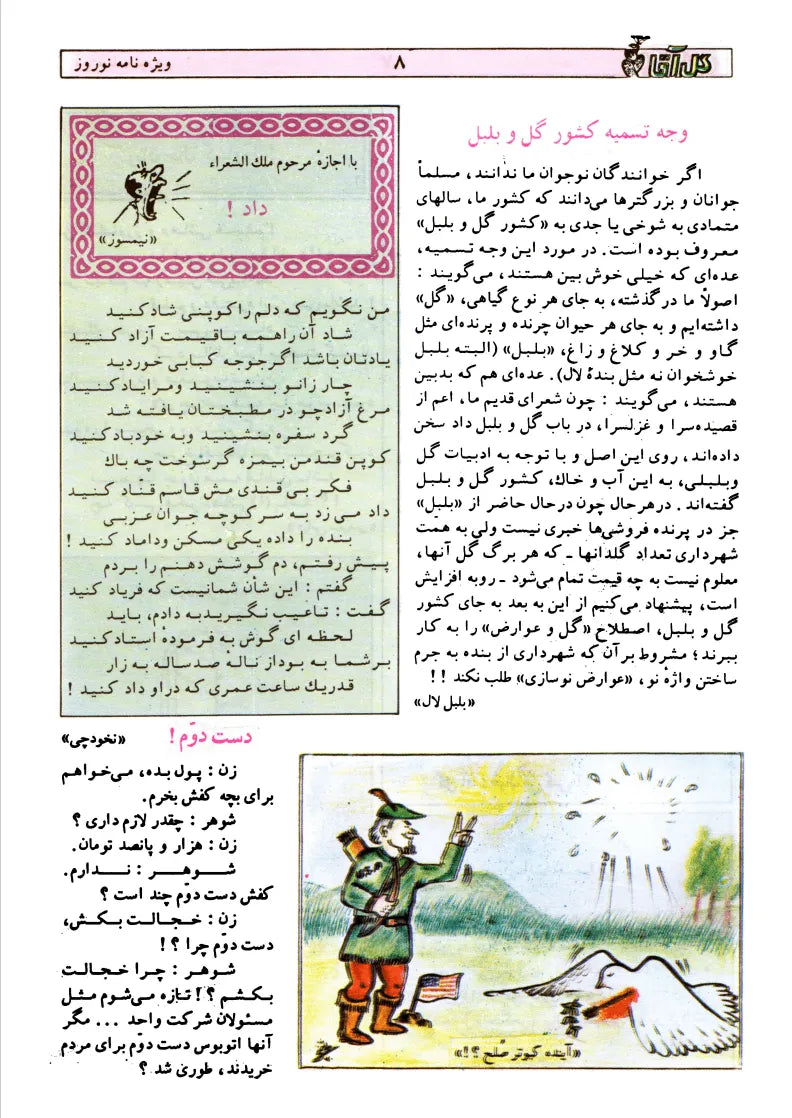 گل آقا
۸
ویژه نامه نوروز
وجه تسمیه کشور گل و بلبل
اگر خوانندگان نوجوان ما ندانند، مسلماً
جوانان و بزرگترها می‌دانند که کشور ما، سالهای
متمادی به شوخی یا جدی به «کشور گل و بلبل»
معروف بوده است. در مورد این وجه تسمیه،
عده‌ای که خیلی خوش بین هستند، می‌گویند :
اصولاً ما درگذشته، به جای هر نوع گیاهی، «گل»
داشته‌ایم و به جای هر حیوان چرنده و پرنده‌ای مثل
گاو و خر و کلاغ و زاغ، «بلبل» (البته بلبل
خوشخوان نه مثل بندهٔ لال). عده‌ای هم که بدبین
هستند، می‌گویند : چون شعرای قدیم ما، اعم از
قصیده‌سرا و غزلسرا، در باب گل و بلبل داد سخن
داده‌اند، روی این اصل و با توجه به ادبیات گل
وبلبلی، به این آب و خاک، کشور گل و بلبل
گفته‌اند . درهرحال چون درحال حاضر از «بلبل»
جز در پرنده فروشی‌ها خبری نیست ولی به همت
شهرداری تعداد گلدانها ـ که هر برگ گل آنها،
معلوم نیست به چه قیمت تمام می‌شود ـ روبه افزایش
است، پیشنهاد می‌کنیم از این به بعد به جای کشور
گل و بلبل، اصطلاح «گل و عوارض» را به کار
ببرند؛ مشروط برآن که شهرداری از بنده به جرم
ساختن واژهٔ نو، «عوارض نوسازی» طلب نکند !!
«بلبل لال»
با اجازهٔ مرحوم ملك الشعراء
داد !
«نیمسوز»
من نگویم که دلم راکوپنی شادکنید
شاد آن راهمه باقیمت آزاد کنید
یادتان باشد اگرجوجه کبابی خوردید
چار زانو بنشینید ومرایادکنید
مرغ آزادچو در مطبختان یافته شد
گرد سفره بنشینید وبه خودبادکنید
کوپن قندمن بیمزه گرسوخت چه باك
فکر بی قندی مش قاسم قناد کنید
داد می زد به سرکوچه جوان عزبی
بنده را داده یکی مسکن وداماد کنید !
پیش رفتم، دم گوشش دهنم را بردم
گفتم : این شأن شمانیست که فریاد کنید
گفت : تاعیب نگیریدبه دادم، باید
لحظه ای گوش به فرمودهٔ استادکنید
برشما به بوداز نالهٔ صدساله به زار
قدریك ساعت عمری که دراو داد کنید !
دست دوّم !
«نخودچی»
زن : پول بده، می‌خواهم
برای بچه کفش بخرم.
شوهر : چقدر لازم داری ؟
زن : هزار و پانصد تومان.
شوهر : ندارم.
کفش دست دوّم چند است ؟
زن : خجالت بکش،
دست دوّم چرا ؟ !
شوهر : چرا خجالت
بکشم ؟ ! تازه می‌شوم مثل
مسئولان شرکت واحد ... مگر
آنها اتوبوس دست دوّم برای مردم
خریدند، طوری شد ؟
«آینده کبوتر صلح ؟ !»